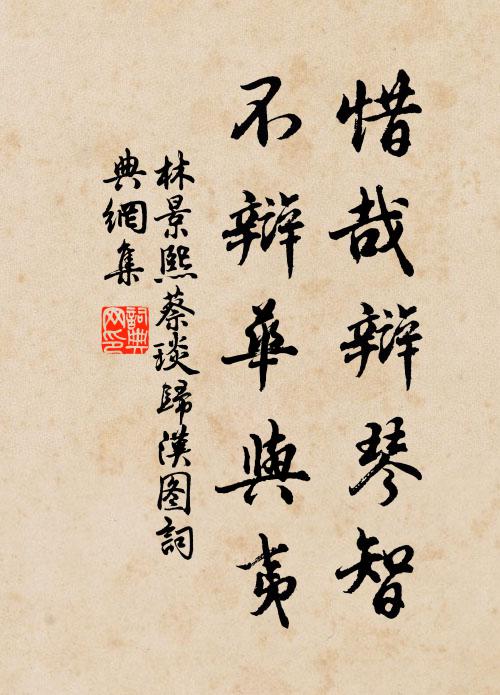 惜哉辯琴智
不辯華與夷
林景熙蔡琰歸漢图詞
典網集
詞典
网印